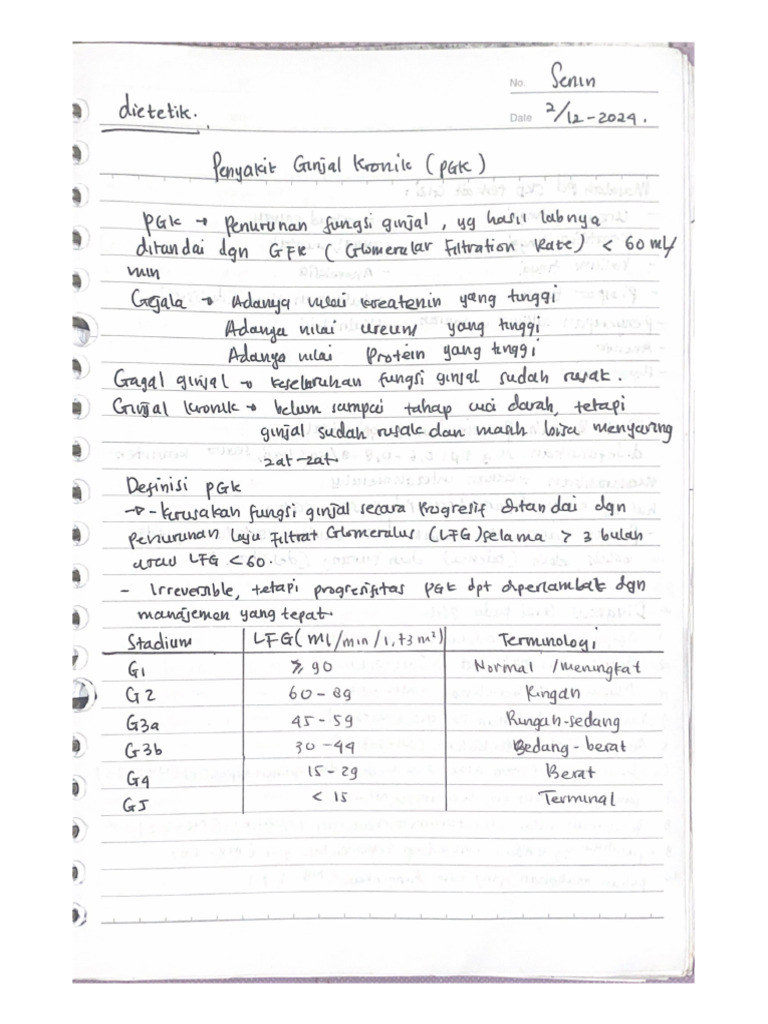 No. Senin
dietetik.
Date 2/12-2024.
Penyakit Ginjal Kronik (PGK)
PGK → Penurunan fungsi ginjal, yg hasil labnya
ditandai dgn GFR (Glomerular Filtration Rate) < 60 ml/
min
Gejala → Adanya nilai kreatenin yang tinggi
Adanya nilai ureum yang tinggi
Adanya nilai Protein yang tinggi
Gagal ginjal → keseluruhan fungsi ginjal sudah rusak.
Ginjal kronik → belum sampai tahap cuci darah, tetapi
ginjal sudah rusak dan masih bisa menyaring
zat-zat.
Definisi PGK
→ - Kerusakan fungsi ginjal secara Progresif ditandai dgn
Penurunan Laju Filtrat Glomeralus (LFG) selama > 3 bulan
atau LFG < 60.
- Irreversible, tetapi progresifitas PGK dpt diperlambat dgn
manajemen yang tepat.
Stadium LFG (ml/min/1,73 m²) Terminologi
G1 ≥ 90 Normal /meningkat
G2 60 - 89 Ringan
G3a 45 - 59 Ringan-sedang
G3b 30 - 44 Sedang - berat
G4 15 - 29 Berat
G5 < 15 Terminal